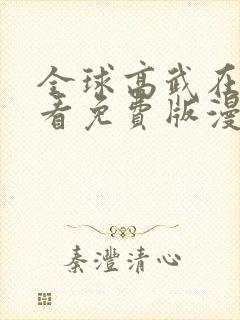 全球高武在
看免費版漫
秦灃清心